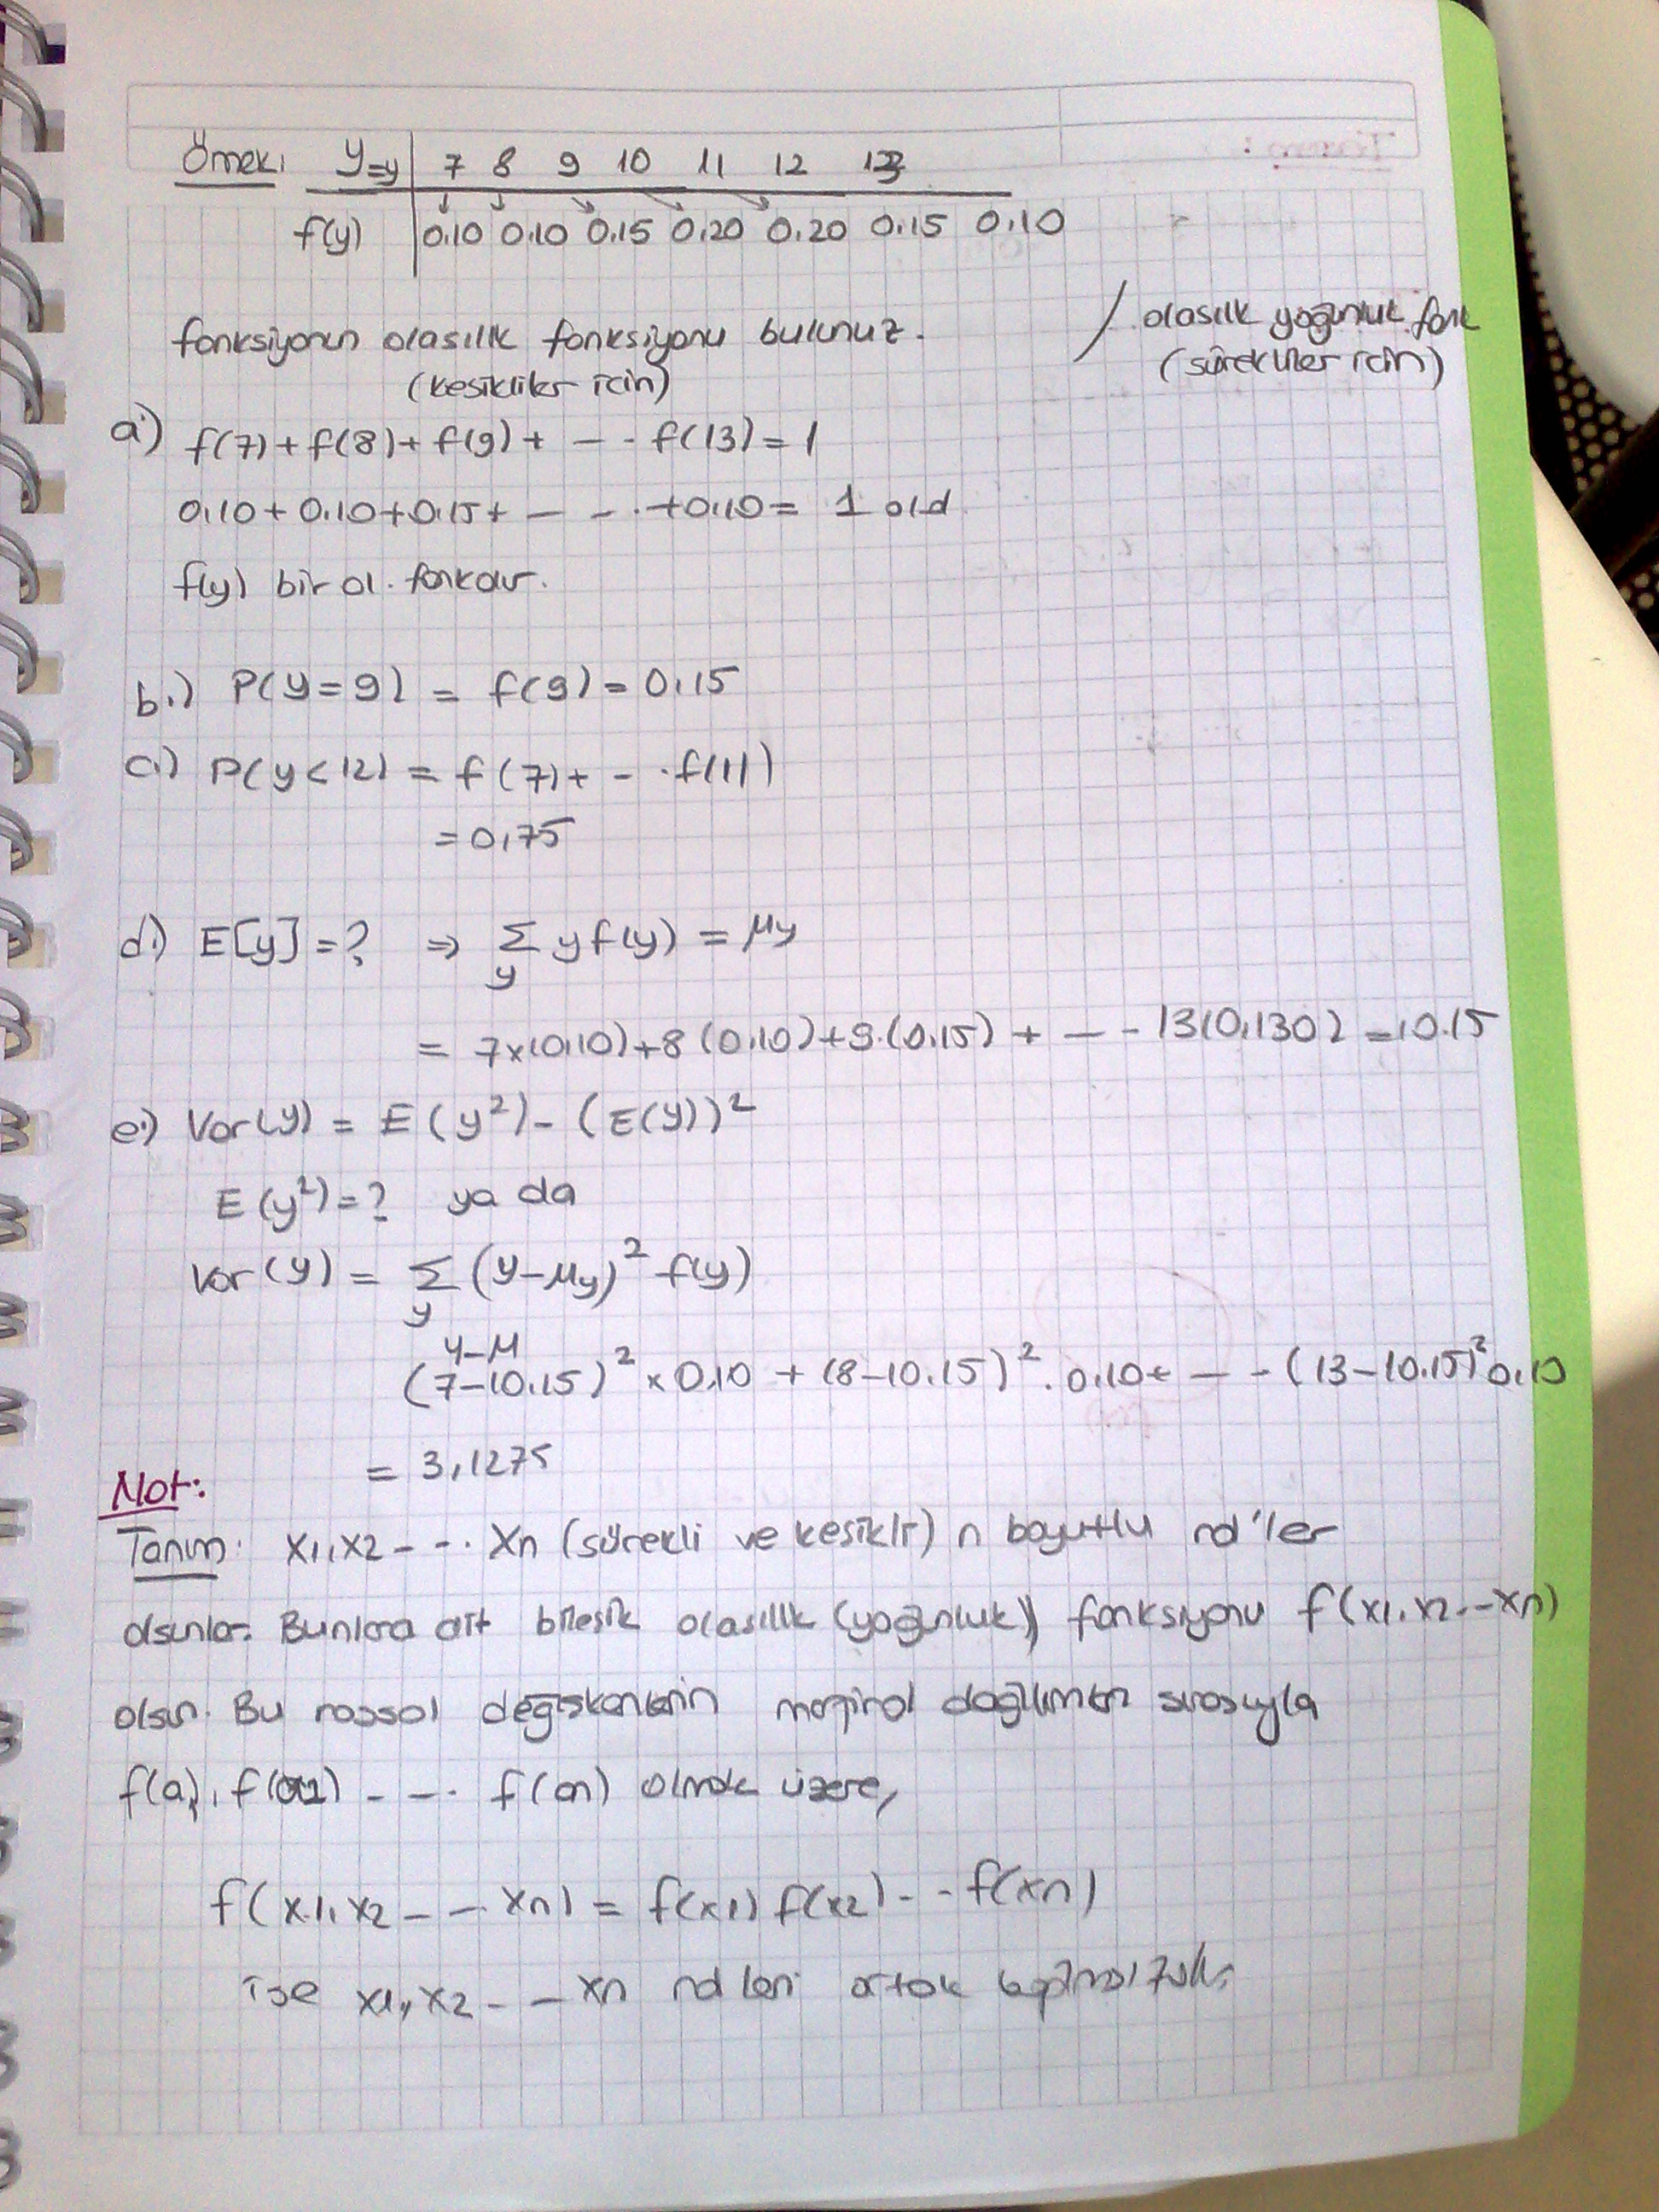 Örnek: Y=y 7 8 9 10 11 12 13
f(y) 0,10 0,10 0,15 0,20 0,20 0,15 0,10
fonksiyonun olasılık fonksiyonu bulunuz. / olasılık yoğunluk fonk
(kesikliler için) (sürekliler için)
a) f(7)+f(8)+f(9)+ — - f(13)=1
0,10+0,10+0,15+ — - . +0,10= 1 old
f(y) bir ol. fonkdur.
b.) P(y=9) = f(9)=0,15
c.) P(y<12) = f(7)+ - . f(11)
=0,75
d.) E[y]=? ⇒ Σ y f(y) = μy
y
= 7x(0,10)+8(0,10)+9.(0,15) + — - 13(0,130) =10.15
e.) Var(y) = E(y²)-(E(y))²
E(y²)=? ya da
Var(y) = Σ (y-μy)² f(y)
y
y-μ
(7-10,15)² x 0,10 + (8-10,15)² . 0,10+ — - (13-10,15)² 0,10
= 3,1275
Not:
Tanım: x1,x2 - - . xn (sürekli ve kesikli) n boyutlu rd'ler
olsunlar. Bunlara ait bileşik olasılık (yoğunluk) fonksiyonu f(x1,x2.-xn)
olsun. Bu rassal değişkenlerin marjinal dağılımları sırasıyla
f(a), f( ) - - . f(an) olmak üzere,
f(x1,x2 - - . xn) = f(x1) f(x2) - - f(xn)
ise x1,x2 - - xn rd leri ortak